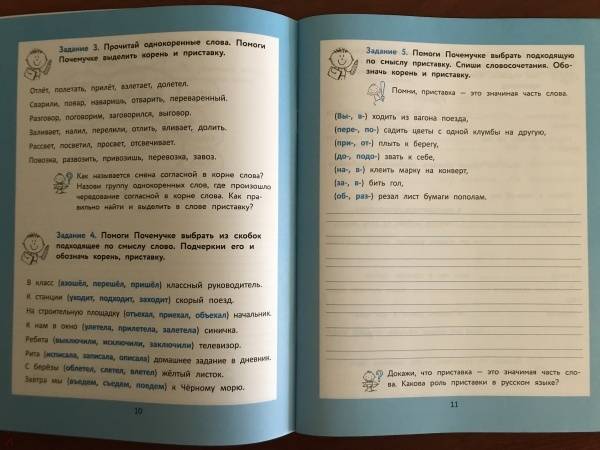 Задание 3. Прочитай однокоренные слова. Помоги
Почемучке выделить корень и приставку.
Отлёт, полетать, прилёт, взлетает, долетел.
Сварили, повар, наваришь, отварить, переваренный.
Разговор, поговорим, заговорился, выговор.
Заливает, налил, перелили, отлить, вливает, долить.
Рассвет, посветил, просвет, отсвечивает.
Повозка, развозить, привозишь, перевозка, завоз.
Как называется смена согласной в корне слова?
Назови группу однокоренных слов, где произошло
чередование согласной в корне слова. Как пра-
вильно найти и выделить в слове приставку?
Задание 4. Помоги Почемучке выбрать из скобок
подходящее по смыслу слово. Подчеркни его и
обозначь корень, приставку.
В класс (взошёл, перешёл, пришёл) классный руководитель.
К станции (уходит, подходит, заходит) скорый поезд.
На строительную площадку (отъехал, приехал, объехал) начальник.
К нам в окно (улетела, прилетела, залетела) синичка.
Ребята (выключили, исключили, заключили) телевизор.
Рита (исписала, записала, описала) домашнее задание в дневник.
С берёзы (облетел, слетел, влетел) жёлтый листок.
Завтра мы (въедем, съедем, поедем) к Чёрному морю.
10
Задание 5. Помоги Почемучке выбрать подходящую
по смыслу приставку. Спиши словосочетания. Обо-
значь корень и приставку.
Помни, приставка — это значимая часть слова.
(Вы-, в-) ходить из вагона поезда,
(пере-, по-) садить цветы с одной клумбы на другую,
(при-, от-) плыть к берегу,
(до-, подо-) звать к себе,
(на-, в-) клеить марку на конверт,
(за-, в-) бить гол,
(об-, раз-) резал лист бумаги пополам.
Докажи, что приставка — это значимая часть сло-
ва. Какова роль приставки в русском языке?
11